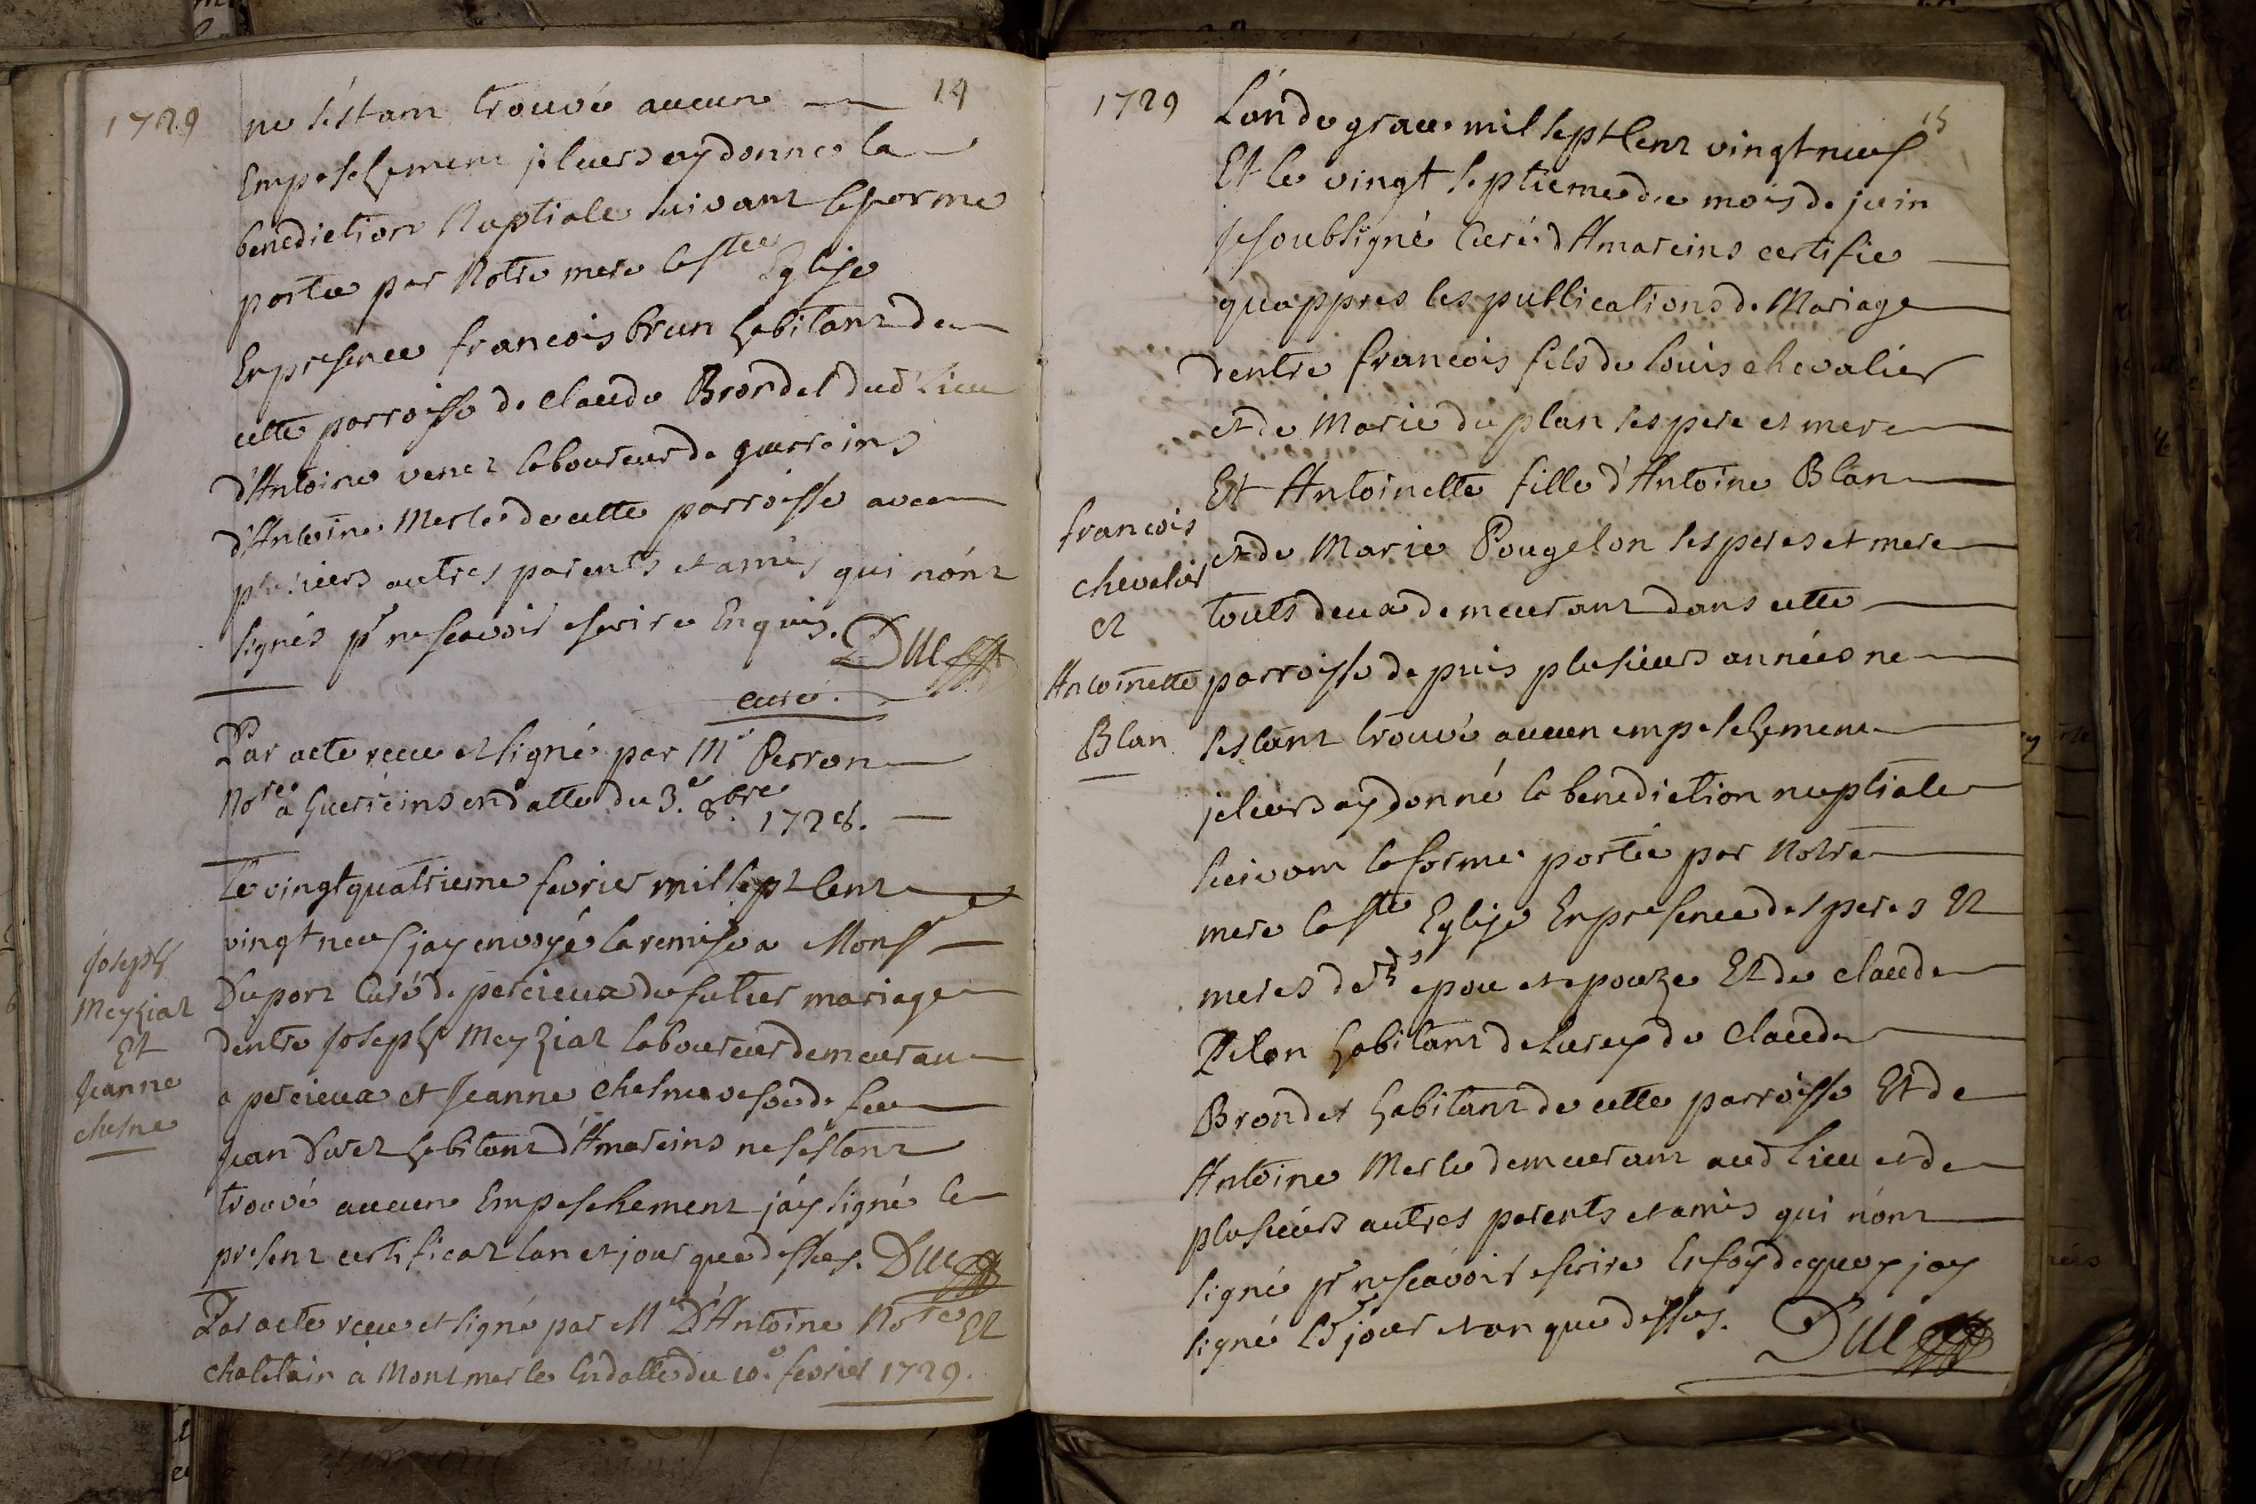 1729
14
ne s'estant trouvé aucune
Empeschement je leurs ay donnes la
benediction Nuptiale suivant la forme
portée par Notre mere la Ste Eglise
En presence francois brun habitant de
cette parroisse de Claude Brondel dud lieu
d'Antoine venet laboureur de guerreins
d'Antoine Merle de cette parroisse avec
plusieurs autres parents et amis qui n'ont
signés pr ne scavoir escrire Enquis. Duc
curé.
Par acte receu et signé par Me Perron
Nore a Guerreins en datte du 3.e 8.bre 1728.
Joseph
Meyziat
Et
Jeanne
chesne
Le vingt quatrieme fevrier mil sept Cent
vingt neuf jay envoyé la remise a Monsr
Duport Curé de percieux du futur mariage
dentre Joseph Meyziat laboureur demeurant
a percieux et Jeanne Chesne vefve de feu
Jean Duret habitant d'Amareins ne s'estant
trouvé aucune Empeschement j'ay signé le
present certificat lan et jour que dessus. Duc
Par acte receu et signé par Me D'Antoine Nore Et
Chatelain a Montmerle En datte du 10.e fevrier 1729.
1729
15
L'an de grace mil sept Cent vingt neuf
Et le vingt septieme du mois de juin
je soubsigné Curé d'Amareins certifie
qu'appres les publications de Mariage
dentre francois fils de Louis chevalier
et de Marie du plan ses pere et mere
Et Antoinette fille d'Antoine Blan
et de Marie Pougelon ses peres et mere
francois
chevalier
et
Antoinette
Blan
touts deux demeurant dans cette
parroisse depuis plusieurs années ne
s'estant trouvé aucun empeschement
je leurs ay donné la benediction nuptiale
suivant la forme portée par Notre
mere la Ste Eglise En presence des peres Et
meres desds epou et epouze Et de Claude
Pelon habitant de Lurcy de Claude
Brondet habitant de cette parroisse Et de
Antoine Merle demeurant aud lieu et de
plusieurs autres parents et amis qui n'ont
signé pr ne scavoir escrire En foy de quoy jay
signé les jour et an que dessus. Duc